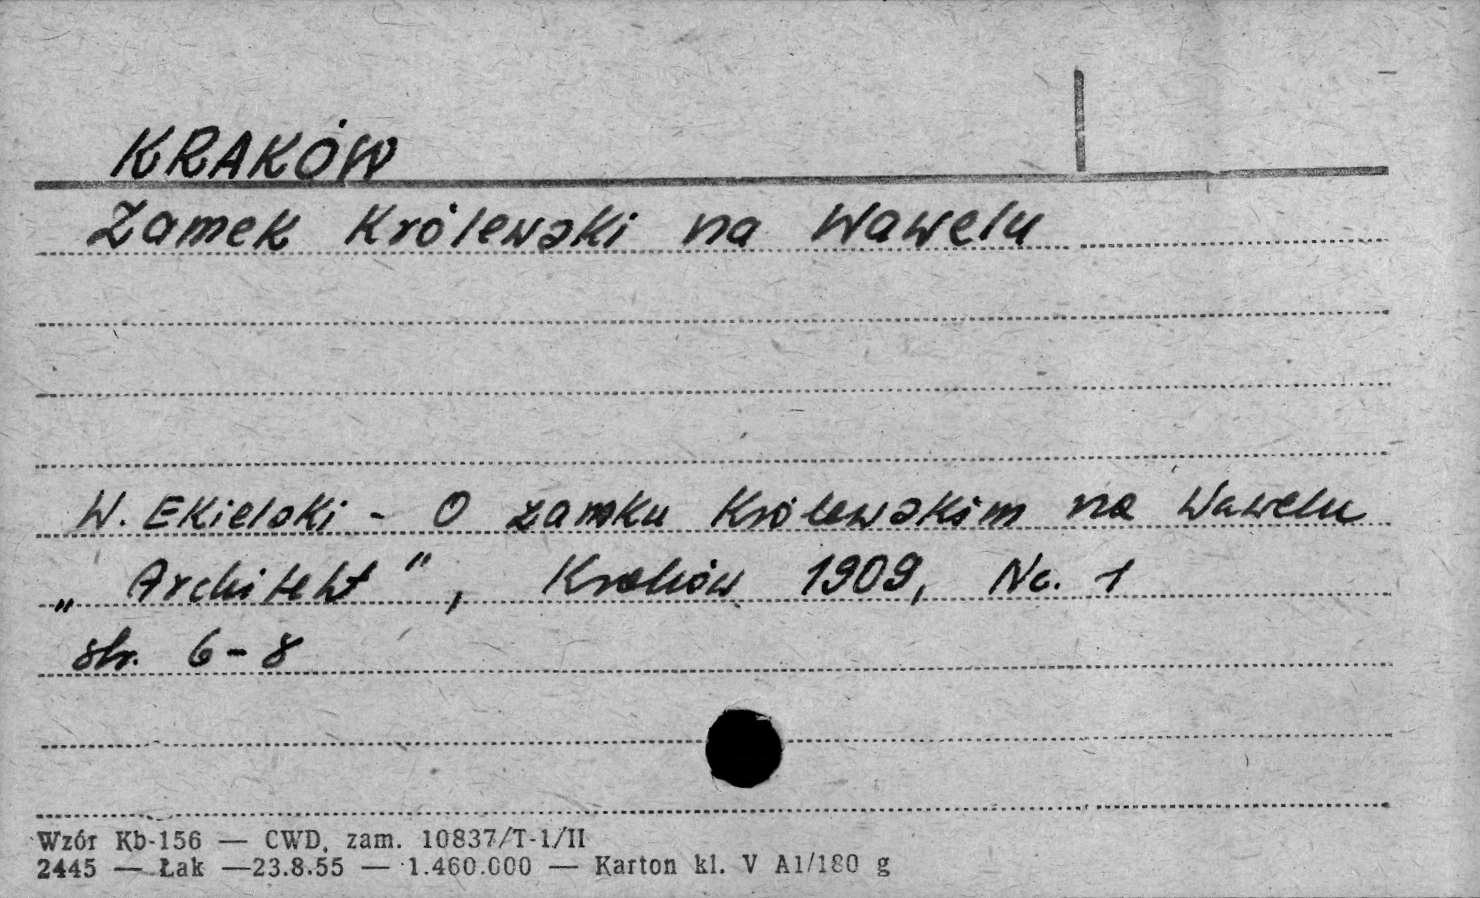 KRAKÓW
Zamek Królewski na Wawelu
W. Ekielski - O zamku Królewskim na Wawelu
„Architekt", Kraków 1909, No. 1
str. 6-8
Wzór Kb-156 — CWD, zam. 10837/T-1/II
2445 — Łak —23.8.55 — 1.460.000 — Karton kl. V A1/180 g